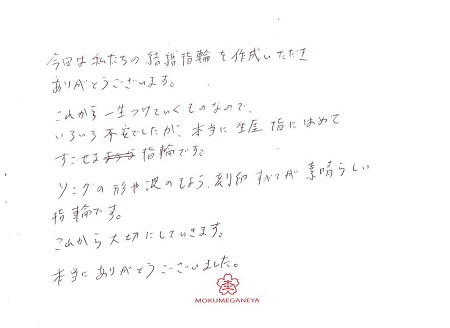 今回は私たちの結婚指輪を作成いただき
ありがとうございます。
これから一生つけていくものなので、
いろいろ不安でしたが、本当に生涯指にはめて
すごせる指輪です。
リングの形や波のもよう、刻印すべてが素晴らしい
指輪です。
これから大切にしていきます。
本当にありがとうございました。
MOKUMEGANEYA